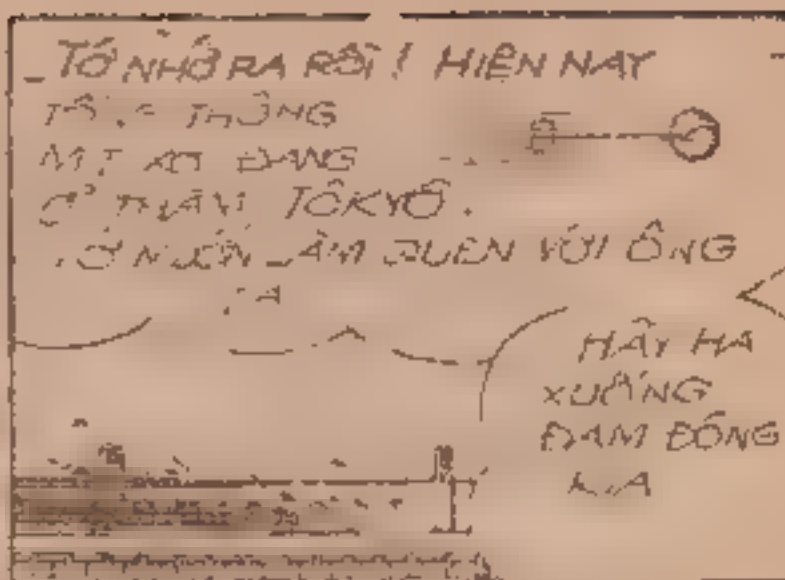 _ TỚ NHỚ RA RỒI! HIỆN NAY
THỐNG
ĐANG
THĂM TÔKYÔ.
TỚ MUỐN LÀM QUEN VỚI ÔNG
TA
HÃY HẠ
XUỐNG
ĐÁM ĐÔNG
KIA